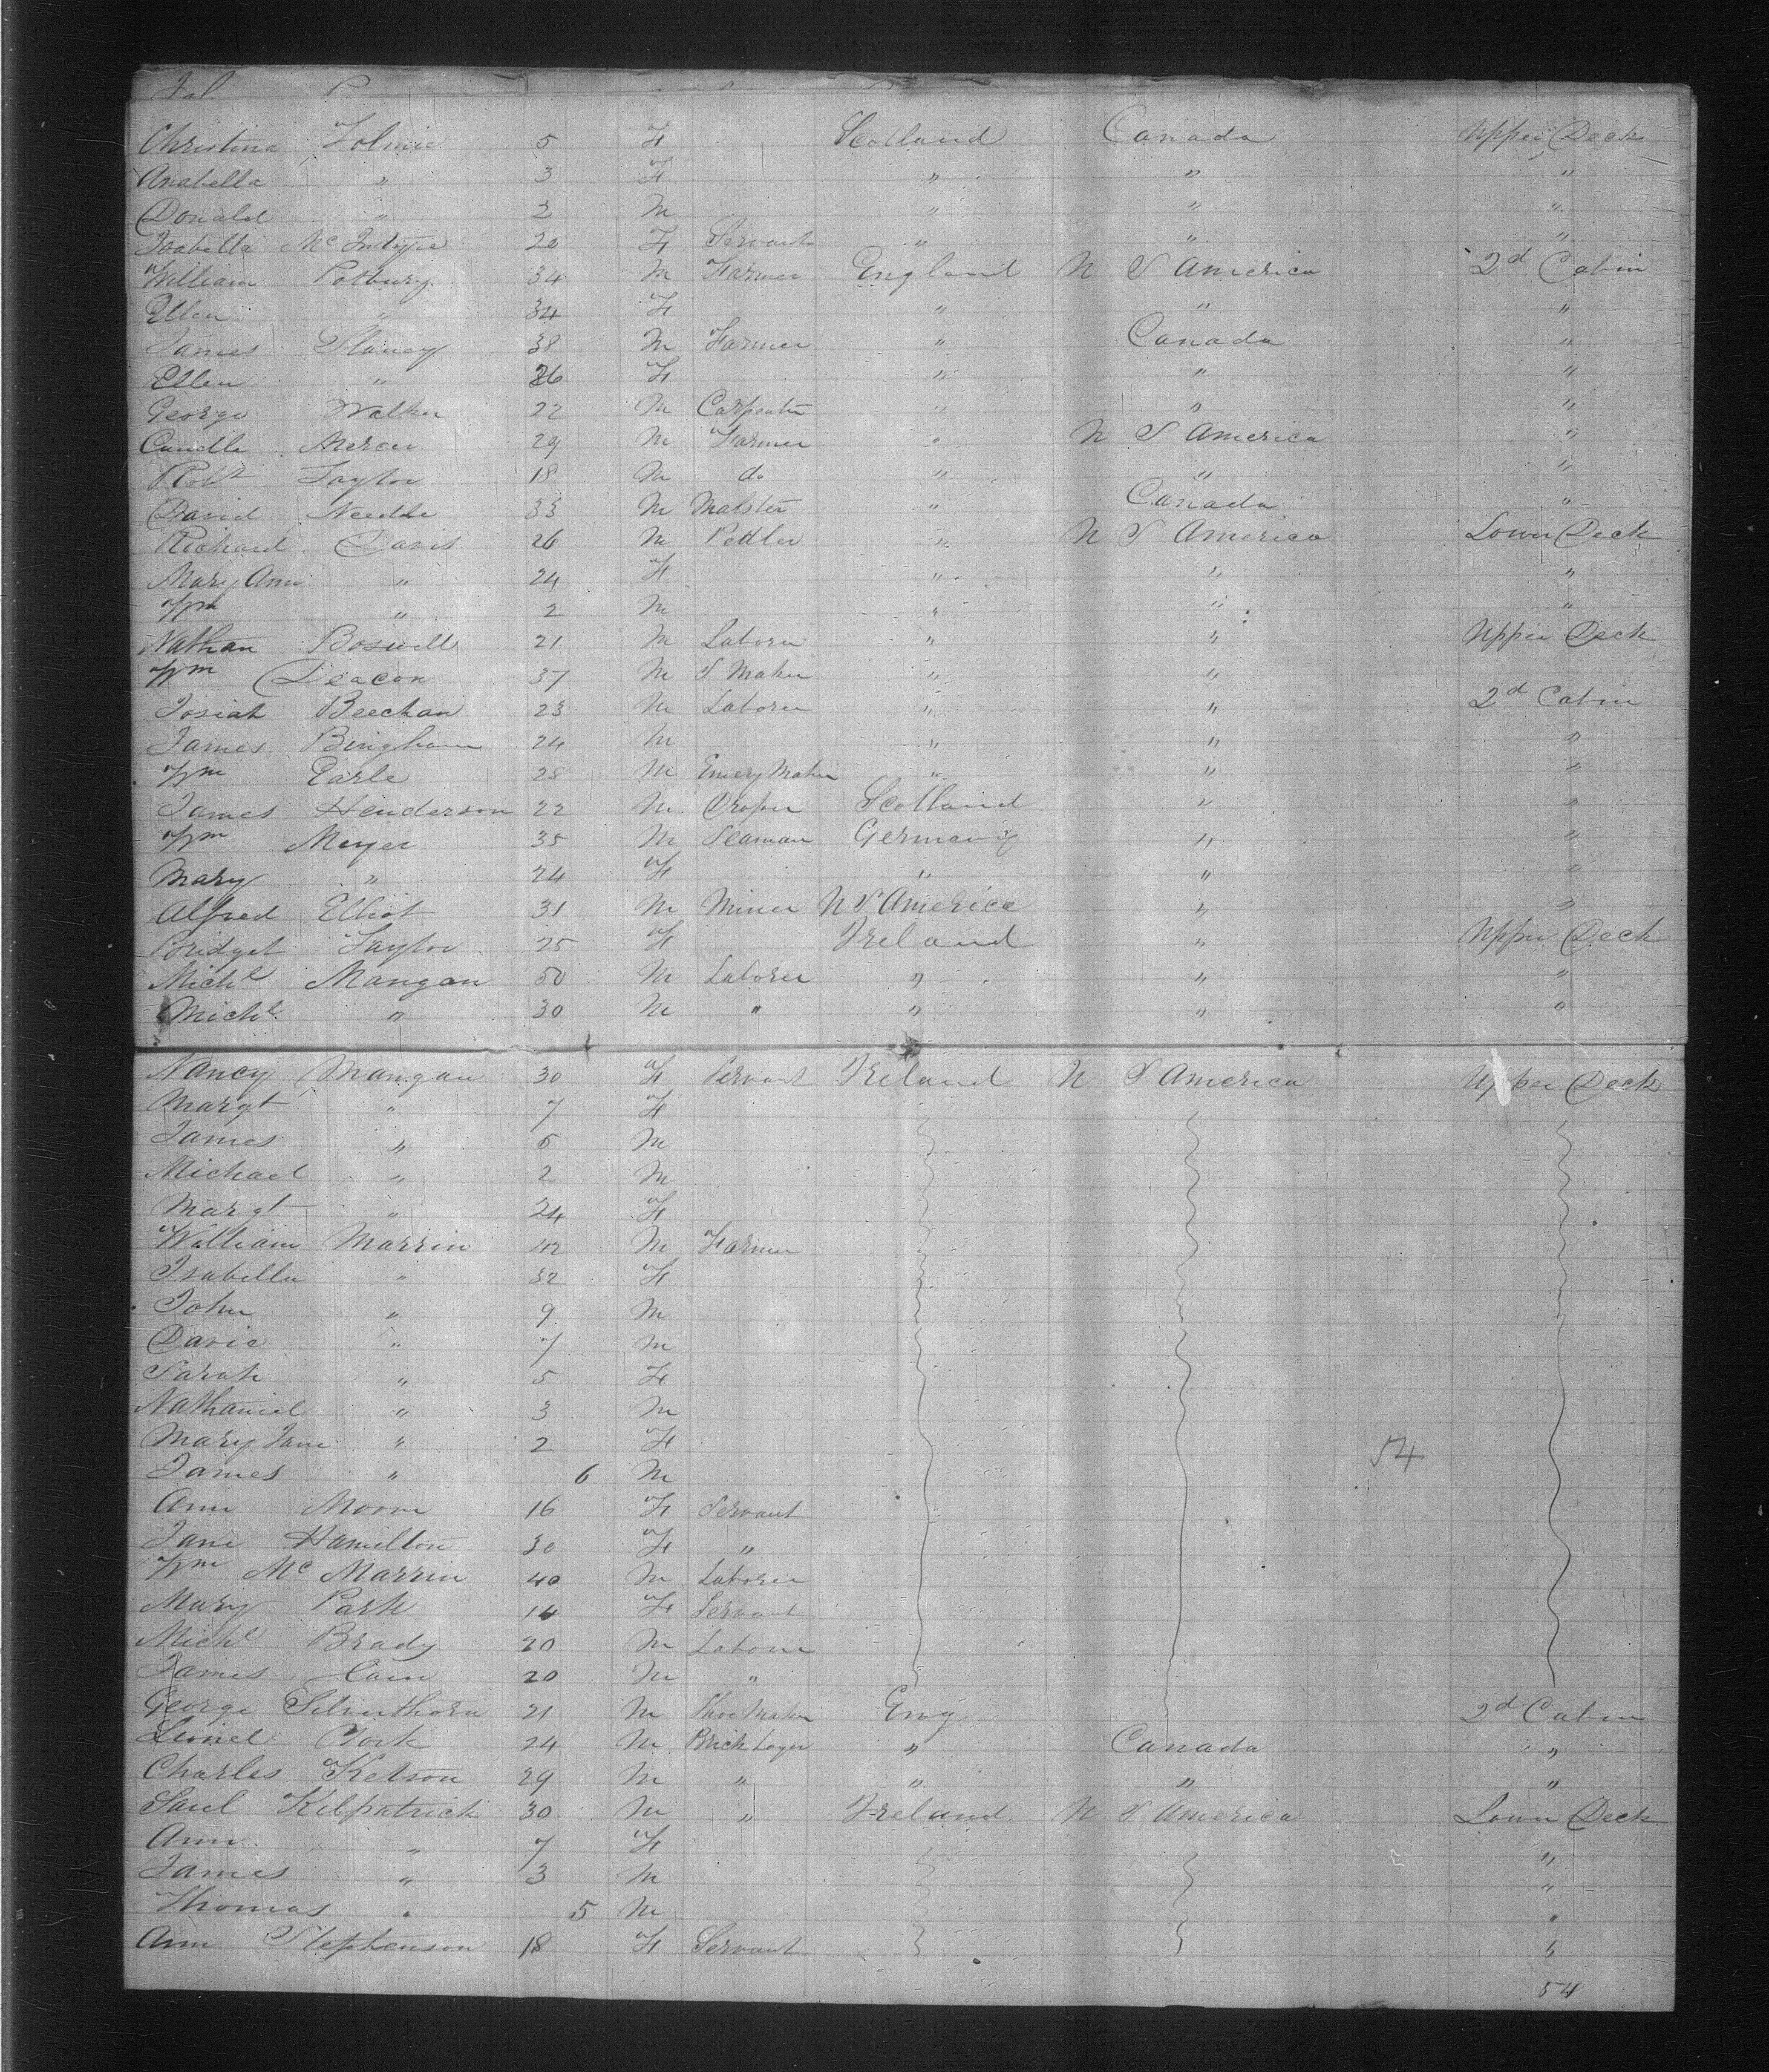 Christina Tolmie 5 F Scotland Canada Upper Deck
Anabella " 3 F " " "
Donald " 2 M " " "
Isabella Mc Intyre 20 F Servant " " "
William Potbury 34 M Farmer England U S America 2d Cabin
Ellen " 34 F " " "
James Slaney 38 M Farmer " Canada "
Ellen " 26 F " " "
George Walker 22 M Carpenter " " "
Mercer 29 M Farmer " U S America "
Robt Taylor 18 M do " " "
David Needle 33 M Malster " Canada "
Richard Davis 26 M Pedler " U S America Lower Deck
Mary Ann " 24 F " " "
Wm " 2 M " " "
Nathan Boswell 21 M Laborer " " Upper Deck
Wm Deacon 37 M S Maker " " "
Josiah Beechan 23 M Laborer " " 2d Cabin
James Bingham 24 M " " "
Wm Earle 28 M Emery Maker " " "
James Henderson 22 M Draper Scotland " "
Wm Meyer 35 M Seaman Germany " "
Mary " 24 F " " "
Alfred Elliot 31 M Miner U S America " "
Bridget Taylor 25 F Ireland " Upper Deck
Michl Mangan 50 M Laborer " " "
Michl " 30 M " " " "
Nancy Mangan 30 F Servant Ireland U S America Upper Deck
Margt " 7 F
James " 5 M
Michael " 2 M
Margt " 24 F
William Marrin 42 M Farmer
Isabella " 32 F
John " 9 M
David " 7 M
Sarah " 5 F
Nathaniel " 3 M
Mary Jane " 2 F 54
James " 6 M
Ann 16 F Servant
Jane Hamilton 30 F "
Wm Mc Marrin 40 M Laborer
Mary Park 14 F Servant
Michl Brady 20 M Laborer
James Cain 20 M "
George Silverthorn 21 M Shoe Maker Eng 2d Cabin
Lionel York 24 M Brick Layer " Canada "
Charles Ketson 29 M " " " "
Saul Kilpatrick 30 M " Ireland U S America Lower Deck
Ann " 7 F "
James " 3 M "
Thomas " 5 M "
Ann Stephenson 18 F Servant "
54